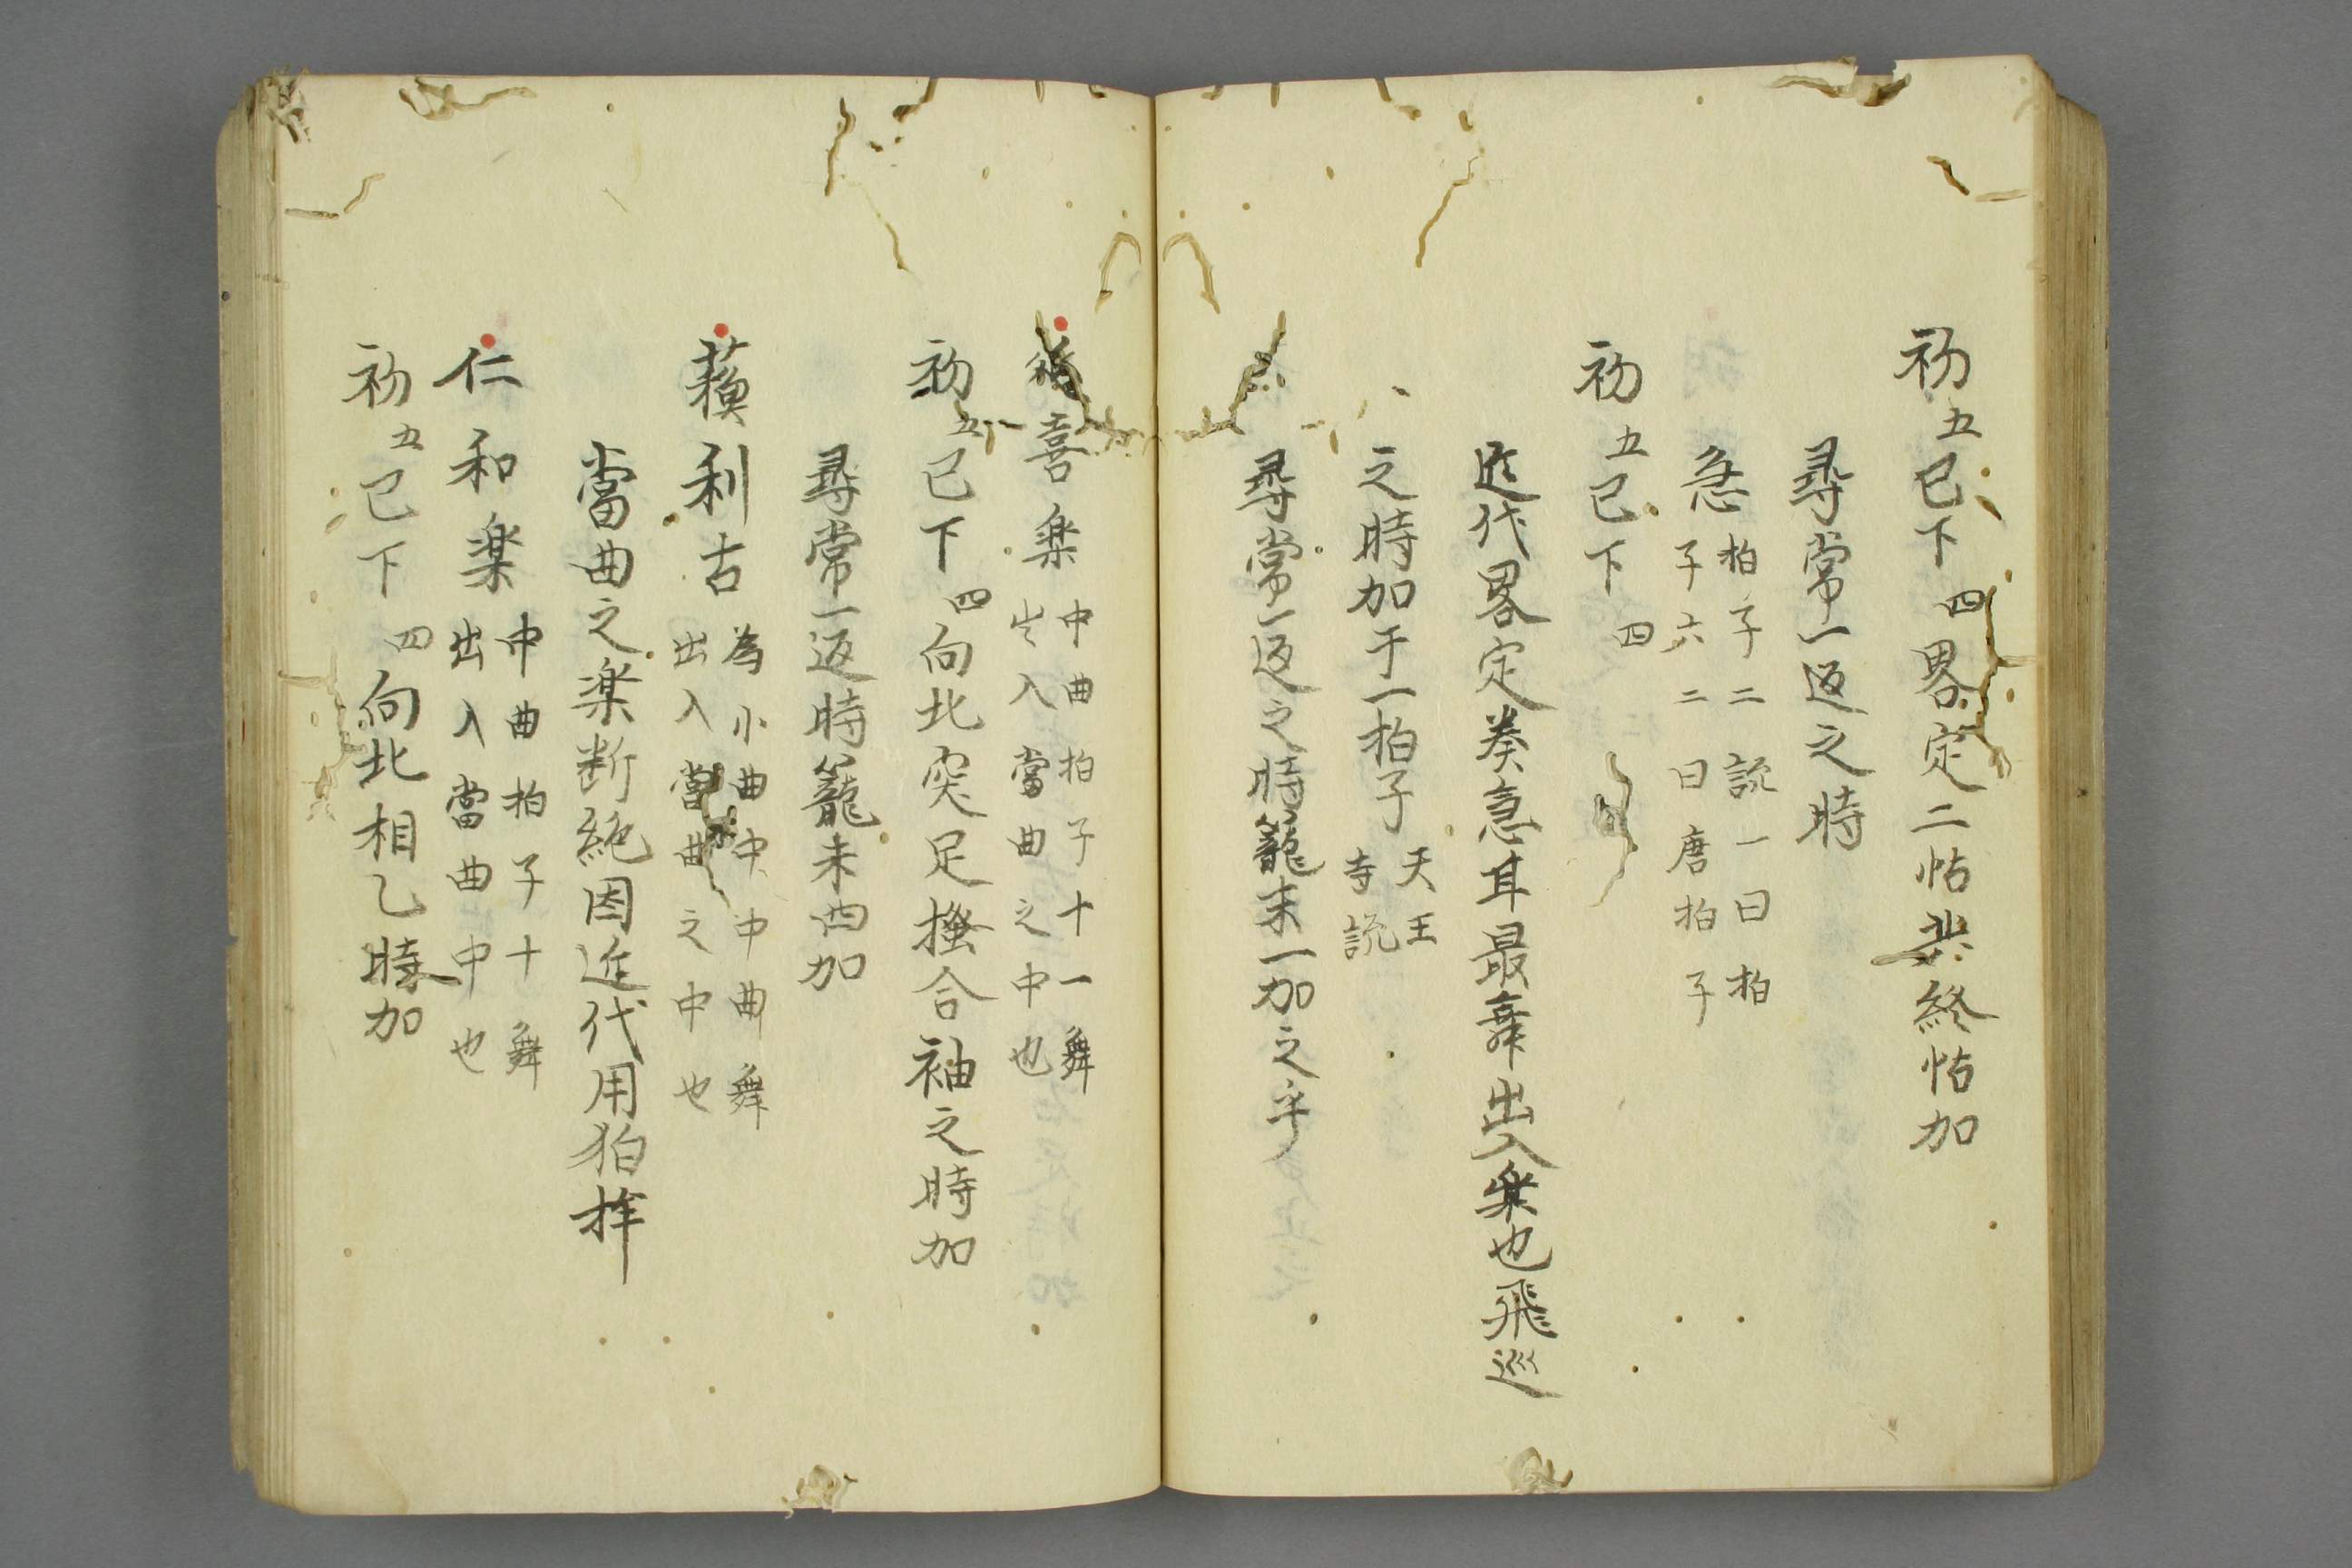 初五已下四畧定二帖畢終帖加
尋常一返之時
急拍子二説一曰拍
子六二曰唐拍子
初五已下四
近代畧定奏急耳最舞出入楽也飛巡
之時加于一拍子天王
寺説
尋常一返之時籠末一加之乎
喜楽中曲拍子十一舞
出入當曲之中也
初五已下四向北突足掻合袖之時加
尋常一返時籠末四加
蘓利古為小曲中中曲舞
出入當曲之中也
當曲之楽断絶因近代用狛桙
仁和楽中曲拍子十舞
出入當曲中也
初五已下四向北相乙時加